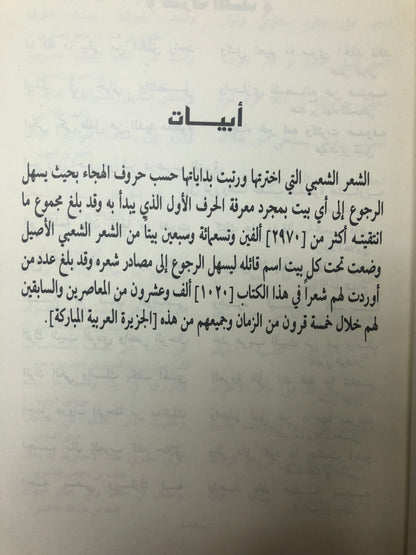 أبيـــات
الشعر الشعبي التي اخترتها ورتبت بداياتها حسب حروف الهجاء بحيث يسهل
الرجوع إلى أي بيت بمجرد معرفة الحرف الأول الذي يبدأ به وقد بلغ مجموع ما
انتقيتـه أكثر من [٢٩٧٠] ألفين وتسعمائة وسبعين بيتاً من الشعر الشعبي الأصيل
وضعت تحت كل بيت اسم قائله ليسهل الرجوع إلى مصادر شعره وقد بلغ عدد من
أوردت لهم شعراً في هذا الكتاب [١٠٢٠] ألف وعشرون من المعاصرين والسابقين
لهم خلال خمسة قرون من الزمان وجميعهم من هذه [الجزيرة العربية المباركة].